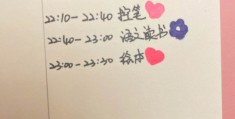 22:10-22:40 控笔
22:40-23:00 语文读书
23:00-23:30 绘本